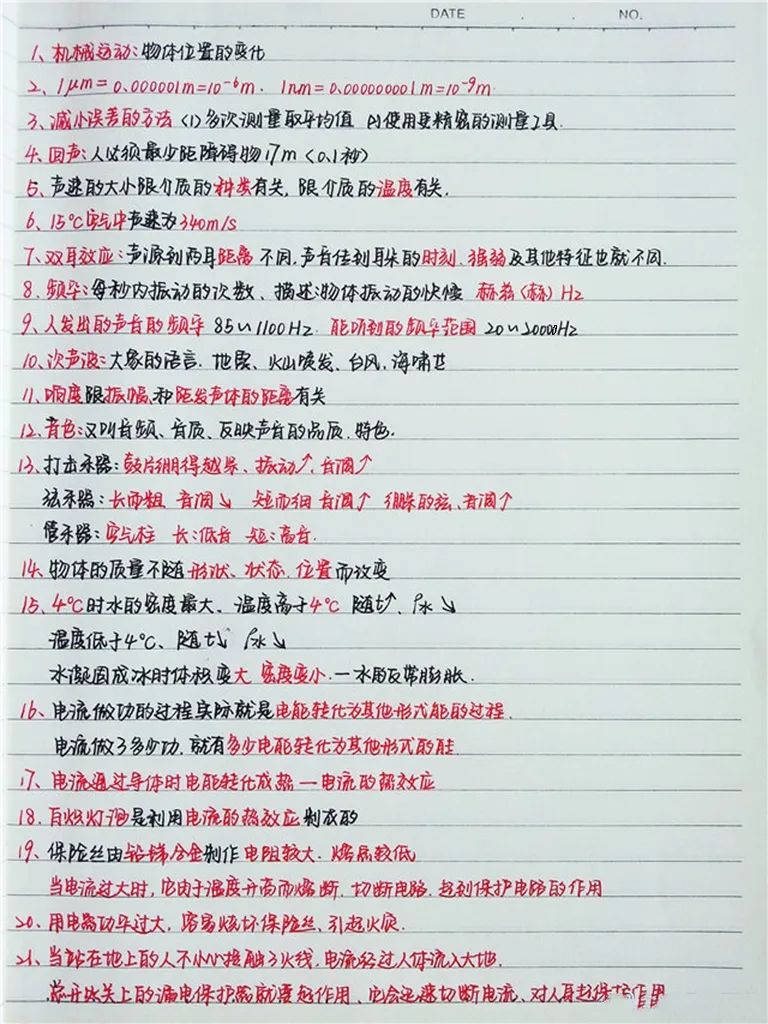 DATE . . NO.
1、机械运动:物体位置的变化
2、1μm=0.000001m=10⁻⁶m. 1nm=0.000000001m=10⁻⁹m
3、减小误差的方法 (1)多次测量取平均值 (2)使用更精密的测量工具.
4、回声:人必须最少距障碍物17m (0.1秒)
5、声速的大小跟介质的种类有关,跟介质的温度有关.
6、15℃空气中声速为340m/s
7、双耳效应:声源到两耳距离不同,声音传到耳朵的时刻.强弱及其他特征也就不同.
8、频率:每秒内振动的次数、描述物体振动的快慢 赫兹(赫)Hz
9、人发出的声音的频率 85~1100Hz. 能听到的频率范围 20~20000Hz
10、次声波:大象的语言.地震、火山喷发、台风.海啸
11、响度跟振幅.和距发声体的距离有关
12、音色:又叫音频、音质、反映声音的品质.特色.
13、打击乐器:鼓片绷得越紧、振动↑.音调↑
弦乐器:长而粗 音调↘ 短而细 音调↑ 绷紧的弦、音调↑
管乐器:空气柱 长:低音 短:高音.
14、物体的质量不随形状、状态.位置而改变
15、4℃时水的密度最大、温度高于4℃ 随t↑、ρ水↘
温度低于4℃、随t↘ ρ水↘
水凝固成冰时体积变大 密度变小.—水的反常膨胀.
16、电流做功的过程实际就是电能转化为其他形式能的过程.
电流做了多少功.就有多少电能转化为其他形式的能.
17、电流通过导体时电能转化成热—电流的热效应
18、白炽灯泡是利用电流的热效应制成的
19、保险丝由铅锑合金制作 电阻较大.熔点较低
当电流过大时,它由于温度升高而熔断.切断电路.起到保护电路的作用
20、用电器功率过大,容易烧坏保险丝、引起火灾.
21、当站在地上的人不小心接触了火线,电流经过人体流入大地.
总开关上的漏电保护器就要起作用、它会迅速切断电流、对人身起保护作用